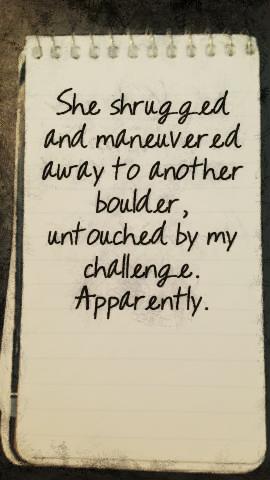 She shrugged
and maneuvered
away to another
boulder,
untouched by my
challenge.
Apparently.